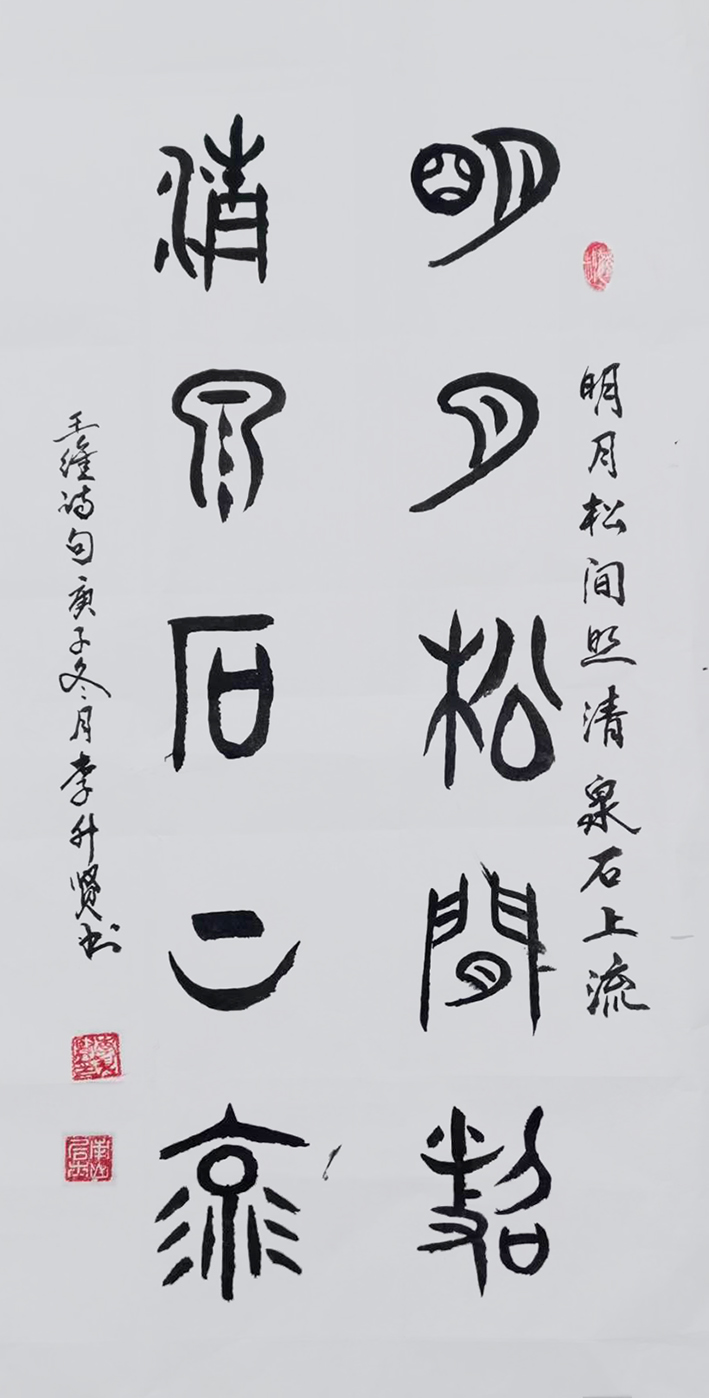 明月松间照清泉石上流
明月松間照
清泉石上流
王維诗句庚子冬月李升贤书